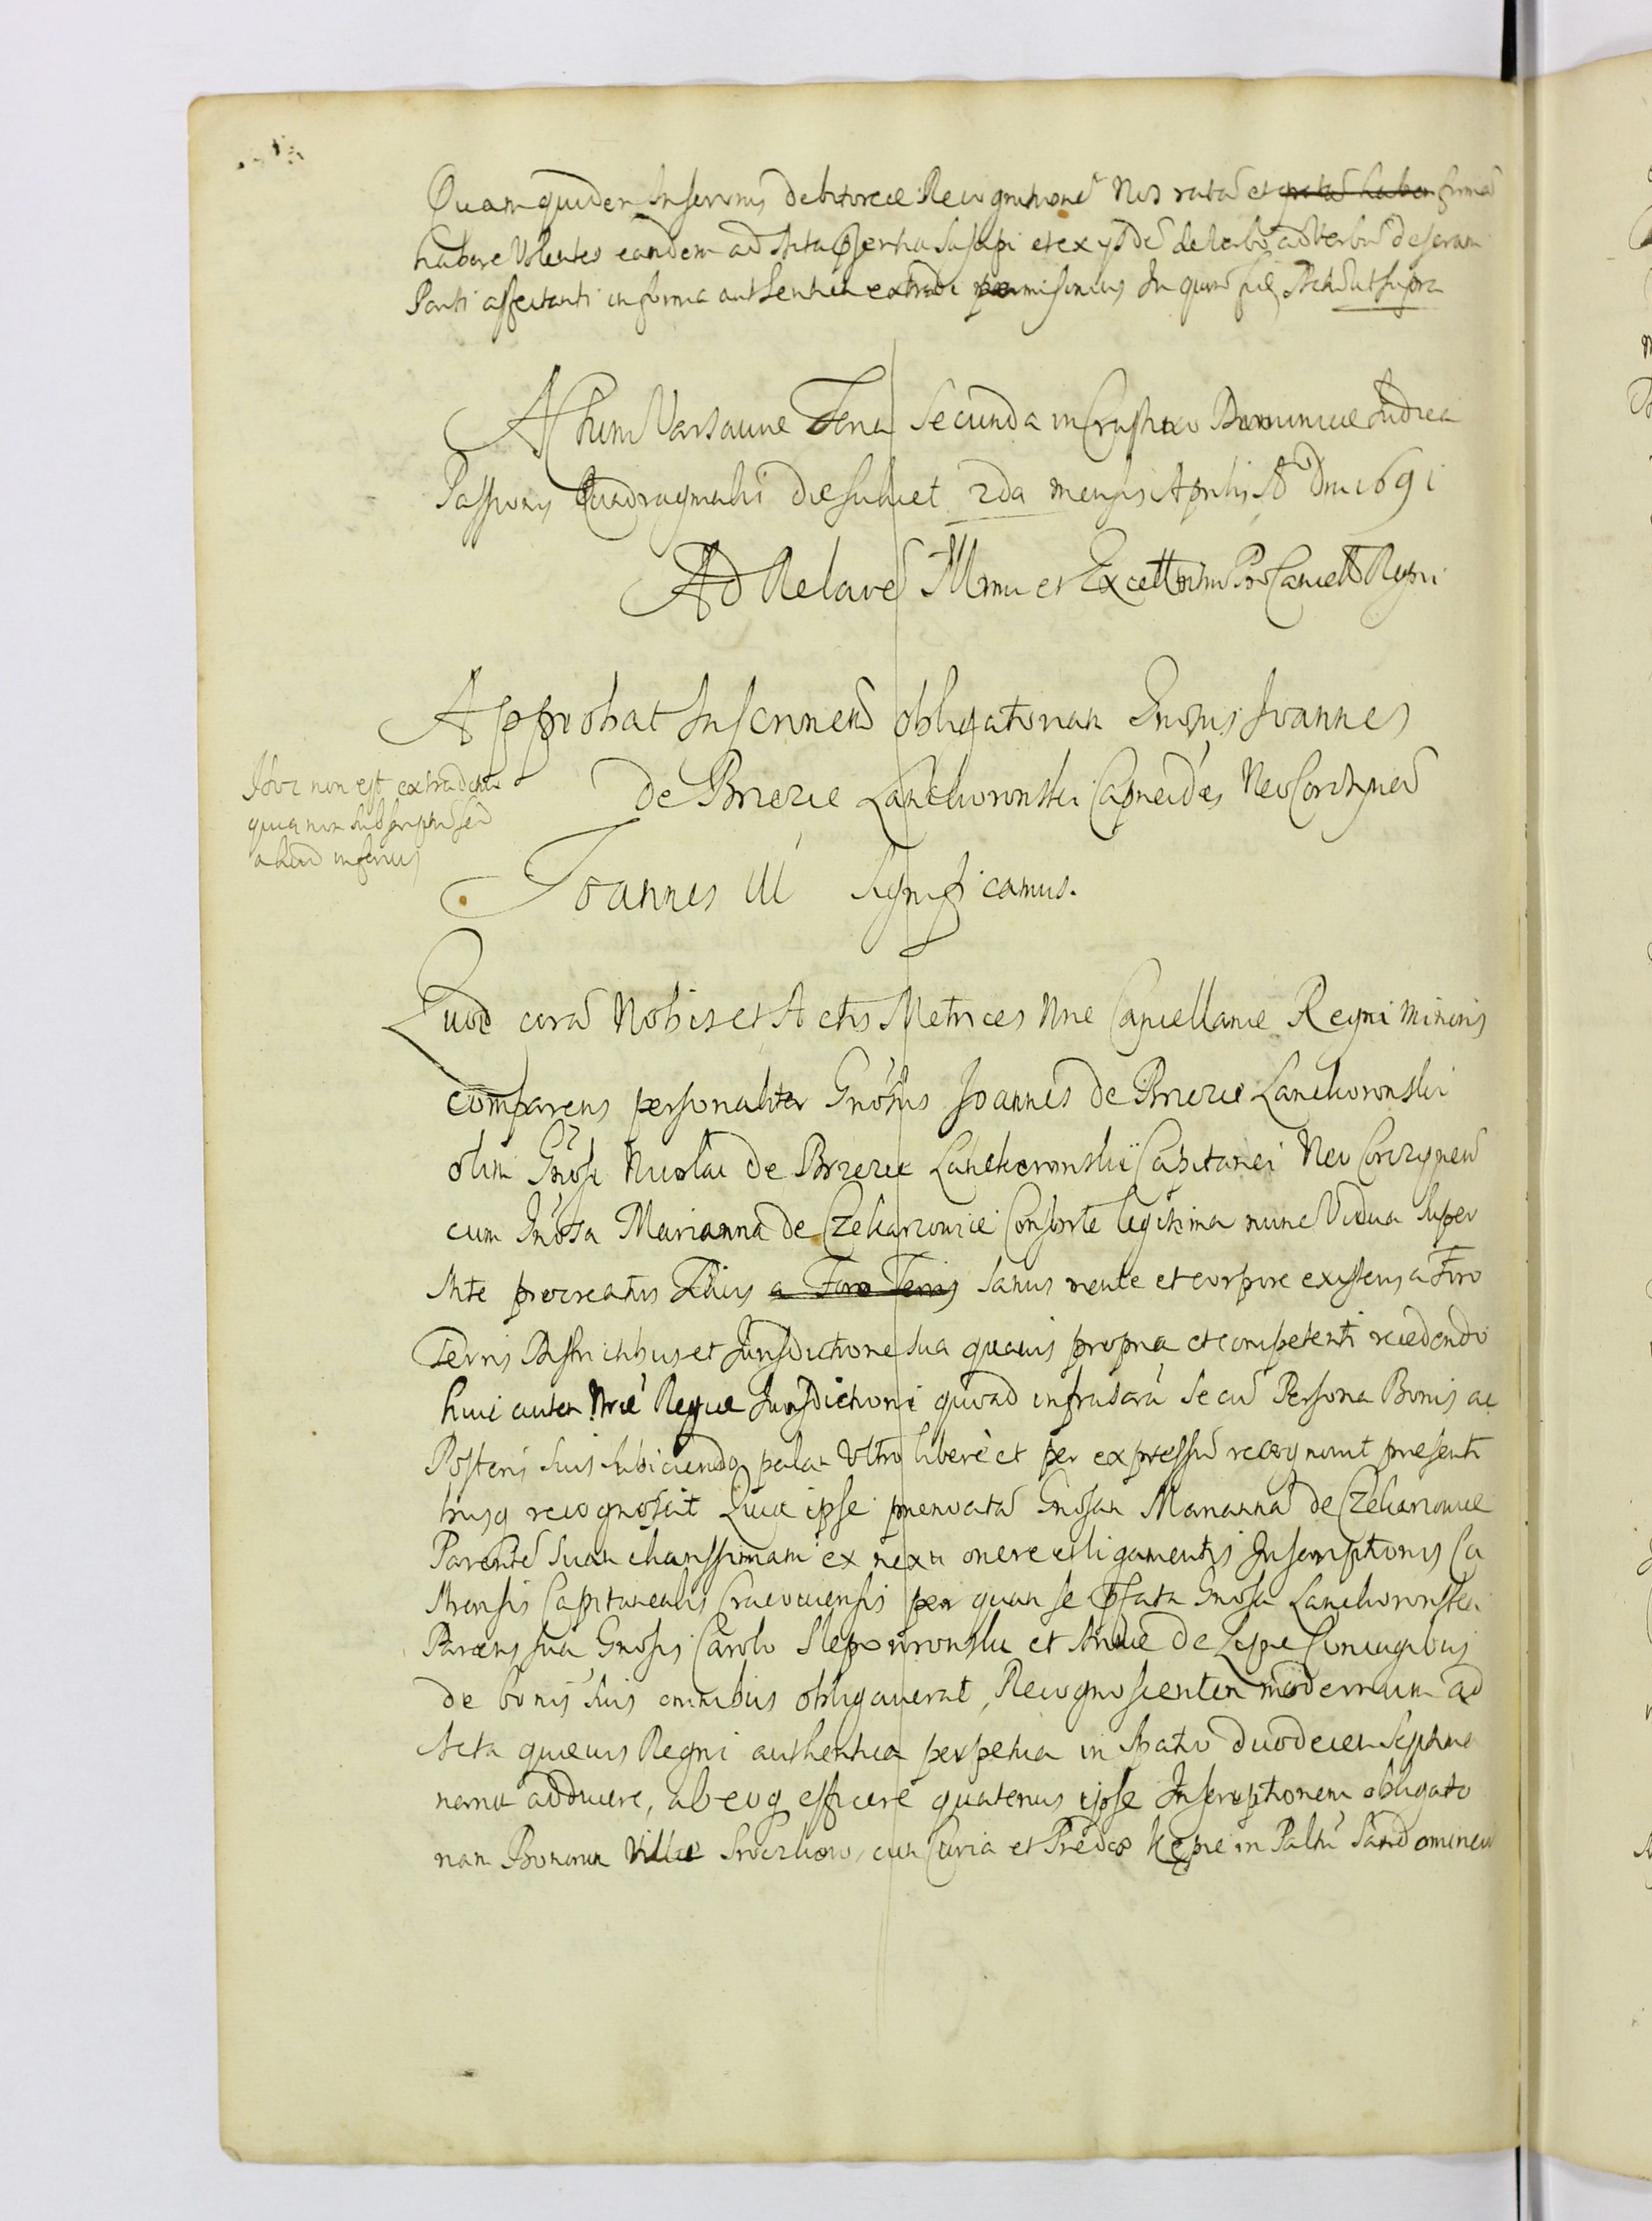 Quam quidem Inscrionis debitoriae Recognitionē Nos ratā et gratā haber firmā
habere Volentes eandem ad Acta pñtia suscipi et ex ijsdē de verbo ad Verbū descram
Parti affectanti in forma authentica extradi permisimus In quorū fid Actū ut supra
Actum Varsauiae Feria Secunda in Crastino Dominicae Judica
Passionis Quadragmalis die scilicet 2da mensis Aprilis Aō Dni 1691
Ad Relaōē Illmi et Excellmi Pro Cancellr Regni
Approbat Inscrionem obligatoriam Gnosus Joannes
de Brzezie Lanckoronski Capneides Neo Corczynen̄
Istud non est extraditū
quia non subscriptū sed
aliud inferius
Joannes III Significamus.
Quod corā Nobis et Actis Metrices Nrae Cancellariae Regni Minoris
comparens personaliter Gnosus Joannes de Brzezie Lanckoronski
olim Gnosi Nicolai de Brzezie Lanckoronski Capitanei Neo Corczynen̄
cum Gnosa Marianna de Czekarzowice Consorte legitima nunc Vidua super
stite procreatus Filius a Foro Terris sanus mente et corpore existens a Foro
Terris Districtibus et Jurisdictione sua quavis propria et competenti recedendo
huic autem Nrae Regiae Jurisdictioni quoad infrascra se cū Persona Bonis ac
Posteris suis subiciendo palam Vltro libere et per expressū recognovit presenti
busq recognoscit Quia ipse prenocatā Gnosam Mariannā de Czekarzowice
Parentē suam charissimam ex nexu onere et ligamentis Inscriptionis Ca
strensis Capitanealis Cracoviensis per quam se pfata Gnosa Lanckoronska
Parens sua Gnosis Carolo Slepowronski et Annae de Lipie Coniugibus
de bonis suis omnibus obligaverat, Recognoscentem modernum ad
Acta quaevis Regni authentica perpetua in spatio duodecem septima
narum adducere, ab eoq efficere quatenus ipse Inscriptionem obligato
riam Bonorum Villae cum Curia et Prędio in Paltū Sandomirien̄